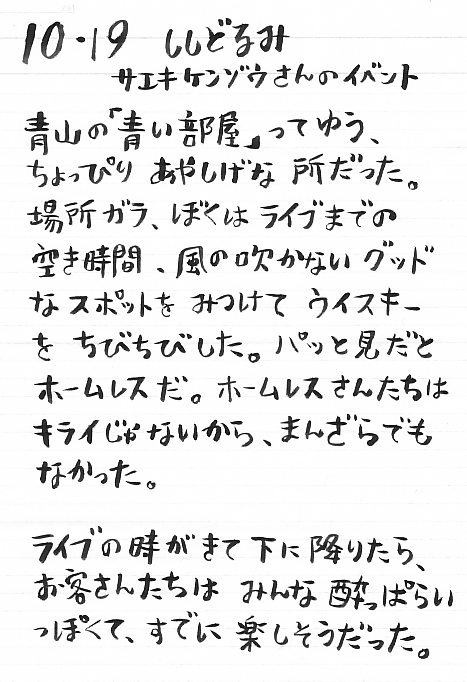 10・19 ししどるみ
サエキケンゾウさんのイベント
青山の「青い部屋」ってゆう、
ちょっぴり あやしげな 所だった。
場所ガラ、ぼくは ライブまでの
空き時間、風の吹かない グッド
な スポットを みつけて ウイスキー
を ちびちびした。パッと見だと
ホームレスだ。ホームレスさんたちは
キライじゃないから、まんざらでも
なかった。
ライブの時がきて 下に 降りたら、
お客さんたちは みんな 酔っぱらい
っぽくて、すでに 楽しそうだった。